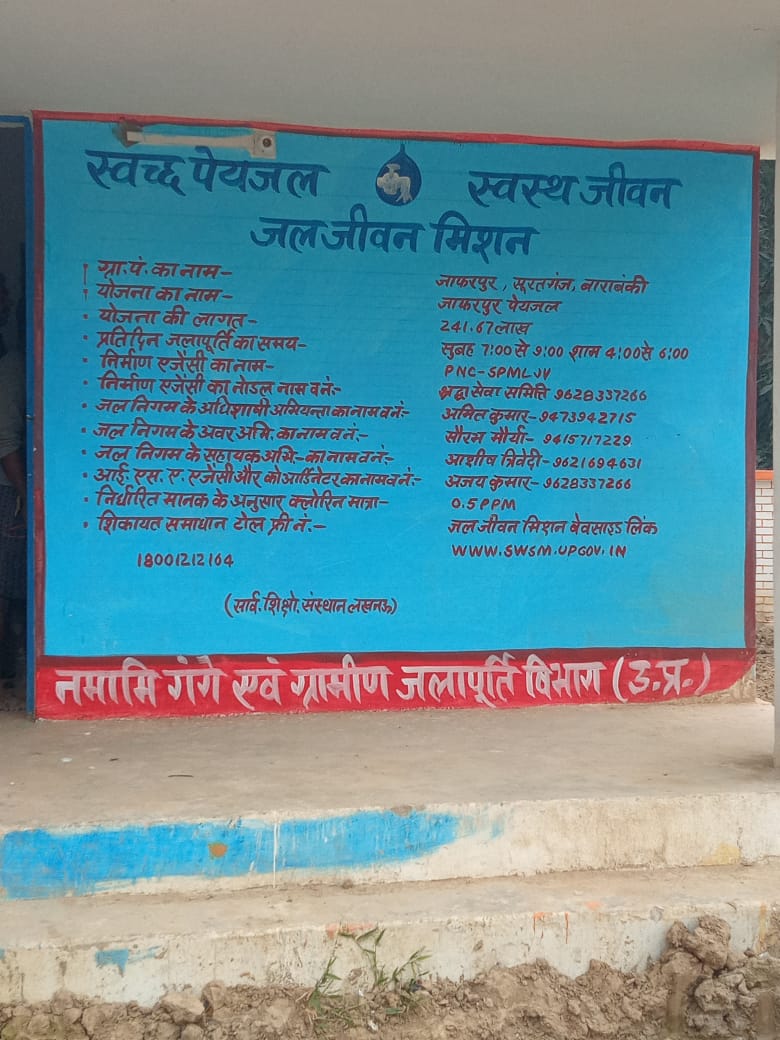 स्वच्छ पेयजल स्वस्थ जीवन
जल जीवन मिशन
• ग्रा.पं. का नाम- जाफरपुर, सूरतगंज, बाराबंकी
• योजना का नाम- जाफरपुर पेयजल
• योजना की लागत- 241.67 लाख
• प्रतिदिन जलापूर्ति का समय- सुबह 7:00 से 9:00 शाम 4:00 से 6:00
• निर्माण एजेंसी का नाम- PNC-SPMLJV
• निर्माण एजेंसी का नोडल नाम व नं:- श्रद्धा सेवा समिति 9628337266
• जल निगम के अधिशाषी अभियन्ता का नाम व नं:- अमित कुमार- 9473942715
• जल निगम के अवर अभि. का नाम व नं:- सौरभ मौर्या- 9415717229
• जल निगम के सहायक अभि- का नाम व नं:- आशीष त्रिवेदी- 9621694631
• आई. एस. ए. एजेंसी और कोआर्डिनेटर का नाम व नं:- अजय कुमार- 9628337266
• निर्धारित मानक के अनुसार क्लोरिन मात्रा- 0.5 PPM
• शिकायत समाधान टोल फ्री नं:- जल जीवन मिशन बेवसाइड लिंक
18001212164 WWW.SWSM.UPGOV.IN
(सार्व. शिक्षो. संस्थान लखनऊ)
नमामि गंगे एवं ग्रामीण जलापूर्ति विभाग (उ.प्र.)